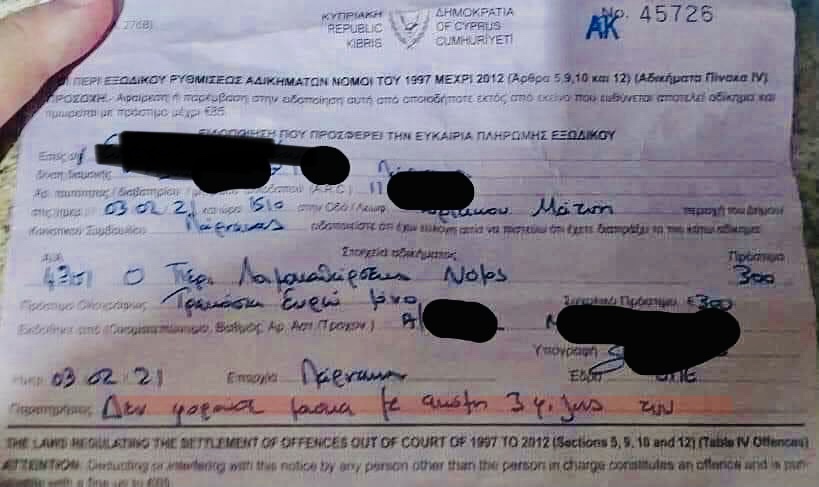 276B)
ΚΥΠΡΙΑΚΗ ΔΗΜΟΚΡΑΤΙΑ
REPUBLIC OF CYPRUS
KIBRIS CUMHURİYETİ
No. 45726
AK
ΟΙ ΠΕΡΙ ΕΞΩΔΙΚΟΥ ΡΥΘΜΙΣΕΩΣ ΑΔΙΚΗΜΑΤΩΝ ΝΟΜΟΙ ΤΟΥ 1997 ΜΕΧΡΙ 2012 (Άρθρα 5,9,10 και 12) (Αδικήματα Πίνακα IV)
ΠΡΟΣΟΧΗ.- Αφαίρεση ή παρέμβαση στην ειδοποίηση αυτή από οποιοδήποτε εκτός από εκείνο που ευθύνεται αποτελεί αδίκημα και
τιμωρείται με πρόστιμο μέχρι €85.
ΕΙΔΟΠΟΙΗΣΗ ΠΟΥ ΠΡΟΣΦΕΡΕΙ ΤΗΝ ΕΥΚΑΙΡΙΑ ΠΛΗΡΩΜΗΣ ΕΞΩΔΙΚΟΥ
Δ/νση διαμονής
Αρ. ταυτότητας / διαβατηρίου / (A.R.C.) 11
στις/ημερ. 03 02 21 και ώρα 1510 στην Οδό / Λεωφ. Μάτση περιοχή του Δήμου
Κοινοτικού Συμβουλίου Λάρνακας ειδοποιείστε ότι έχω εύλογη αιτία να πιστεύω ότι έχετε διαπράξει το πιο κάτω αδίκημα.
Στοιχεία αδικήματος Πρόστιμο
Ο Περί Λοιμοκαθάρσεως Νόμος 300
Πρόστιμο Ολογράφως Τρακόσια Ευρώ μόνο Συνολικό Πρόστιμο €300
Εκδόθηκε από (Ονοματεπώνυμο, Βαθμός, Αρ. Αστ./Τροχον.) A/
Υπογραφή
Ημερ. 03 02 21 Επαρχία Λάρνακα Έδρα
Παρατηρήσεις Δεν φορούσε μάσκα με ακόμη 3 φίλους του
THE LAWS REGULATING THE SETTLEMENT OF OFFENCES OUT OF COURT OF 1997 TO 2012 (Sections 5, 9, 10 and 12) (Table IV Offences)
ATTENTION: Deducting or interfering with this notice by any person other than the person in charge constitutes an offence and is pun-
ishable with a fine up to €85